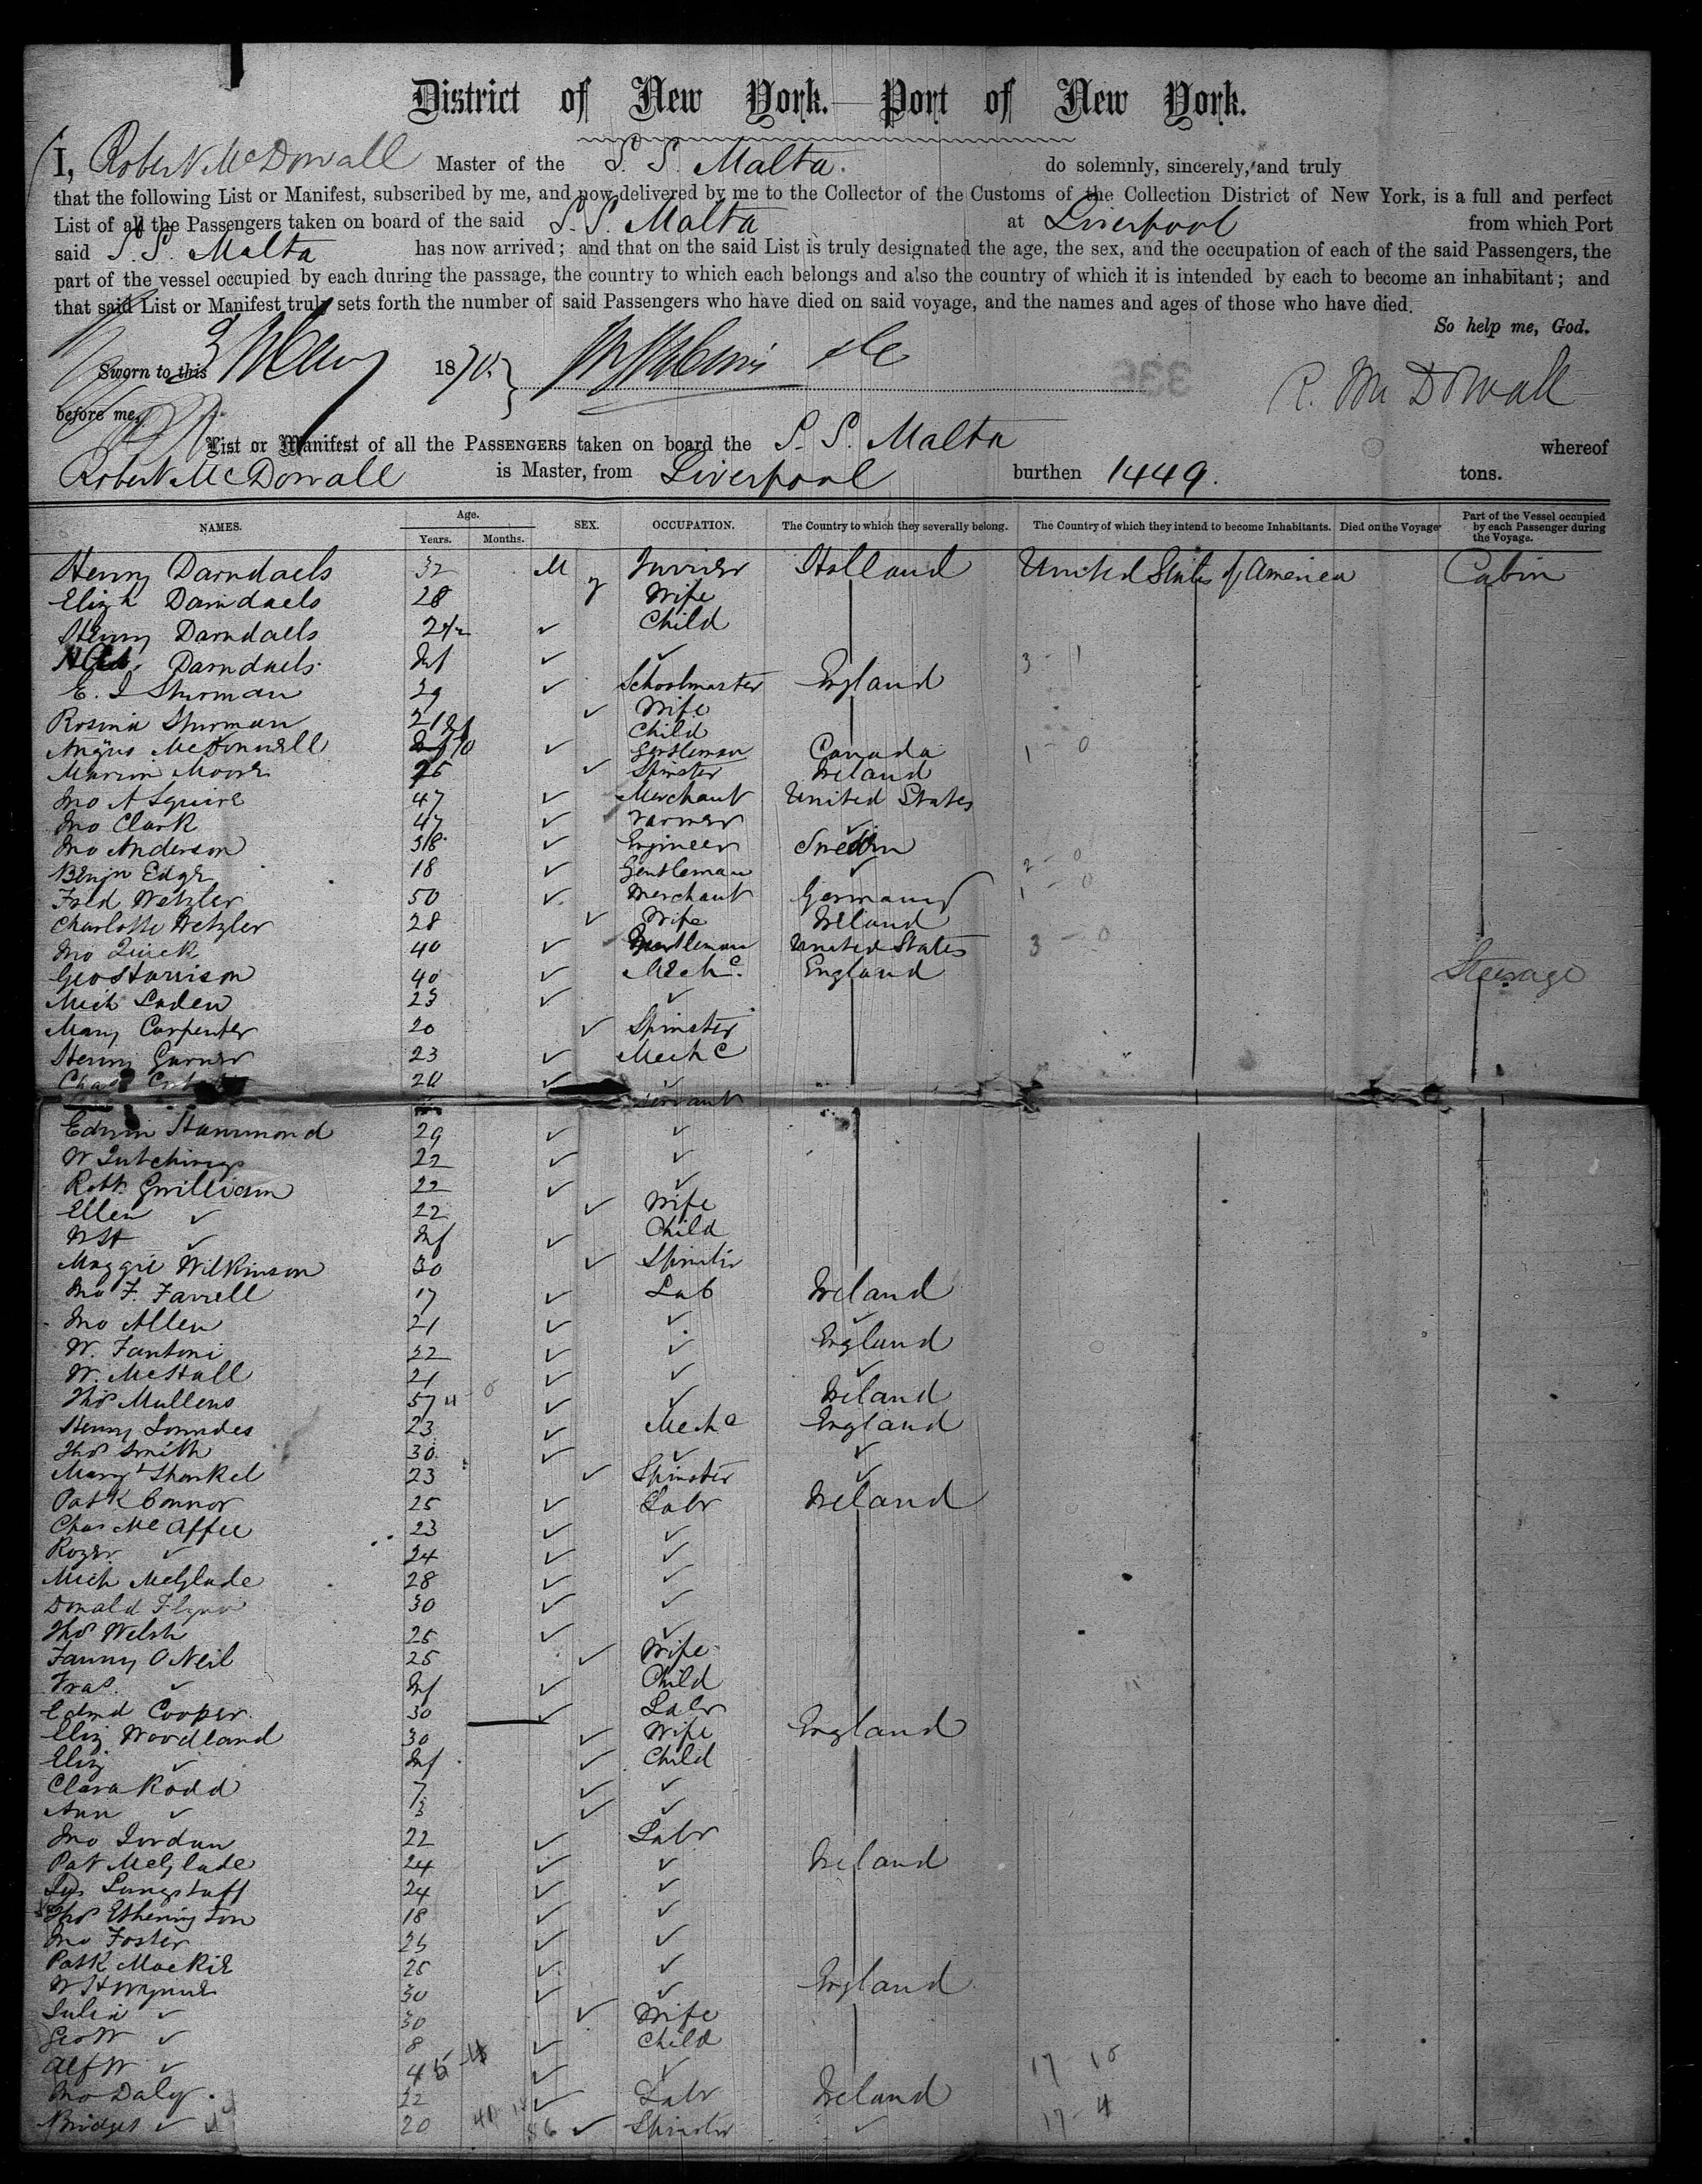 District of New York.—Port of New York.
I, Robert McDowall Master of the S. S. Malta. do solemnly, sincerely, and truly
that the following List or Manifest, subscribed by me, and now delivered by me to the Collector of the Customs of the Collection District of New York, is a full and perfect
List of all the Passengers taken on board of the said S. S. Malta at Liverpool from which Port
said S. S. Malta has now arrived; and that on the said List is truly designated the age, the sex, and the occupation of each of the said Passengers, the
part of the vessel occupied by each during the passage, the country to which each belongs and also the country of which it is intended by each to become an inhabitant; and
that said List or Manifest truly sets forth the number of said Passengers who have died on said voyage, and the names and ages of those who have died.
So help me, God.
Sworn to this 3 May 1870. R. McDowall
before me,
List or Manifest of all the Passengers taken on board the S. S. Malta whereof
Robert McDowall is Master, from Liverpool burthen 1449. tons.
NAMES. Age. Years. Months. SEX. OCCUPATION. The Country to which they severally belong. The Country of which they intend to become Inhabitants. Died on the Voyage Part of the Vessel occupied by each Passenger during the Voyage.
Henry Darndaels 32 M Furrier Holland United States of America Cabin
Elizh Darndaels 28 Wife
Henry Darndaels 2 ✓ Child
Darndaels Inf ✓ ✓ 3 - 1
E. I Shurman 29 ✓ Schoolmaster England
Rosina Shurman 21 ✓ Wife
Child
Angus McDonnell 70 ✓ Gentleman Canada 1 - 0
Marion Moore 25 ✓ Spinster Ireland
Jno A Squire 47 ✓ Merchant United States
Jno Clark 47 ✓ Farmer ✓
Jno Anderson 38 ✓ Engineer Sweden
Benjn Edge 18 ✓ Gentleman ✓ 2 - 0
Fred Wetzler 50 ✓ Merchant Germany 1 - 0
Charlotte Wetzler 28 ✓ Wife Ireland
Jno Quick 40 ✓ Gentleman United States 3 - 0
Geo Harrison 40 ✓ Mechc. England Steerage
Mich Laden 23 ✓ ✓
Mary Carpenter 20 ✓ Spinster
Henry Garner 23 ✓ Mechc
Chas 20 ✓ ✓
Servant
Edwin Hammond 29 ✓ ✓
W Hutchings 22 ✓ ✓
Robt. Gwilliam 22 ✓ ✓
Ellen ✓ 22 ✓ Wife
WH ✓ Inf ✓ Child
Maggie Wilkinson 30 ✓ Spinster
Jno F. Farrell 17 ✓ Lab Ireland
Jno Allen 21 ✓ ✓ ✓
W. Fantoni 32 ✓ ✓ England
W. McHall 21 ✓ ✓ ✓
Thos Mullens 57 ✓ ✓ Ireland
Henry Lowndes 23 ✓ Mechc England
Thos Smith 30 ✓ ✓ ✓
Margt Shankel 23 ✓ Spinster ✓
Patk Connor 25 ✓ Labr Ireland
Chas McAffee 23 ✓ ✓
Roger ✓ 24 ✓ ✓
Mich McGlade 28 ✓ ✓
Donald Flynn 30 ✓ ✓
Thos Welsh 25 ✓ ✓
Fanny O Neil 25 ✓ Wife
Fras. ✓ Inf ✓ Child
Edmd Cooper 30 ✓ Labr
Eliz Woodland 30 ✓ Wife England
Eliz ✓ Inf ✓ Child
Clara Rodd 7 ✓ ✓
Ann ✓ 3 ✓ ✓
Jno Jordan 22 ✓ Labr
Pat McGlade 24 ✓ ✓ Ireland
Jas Langstaff 24 ✓ ✓
Thos Etherington 18 ✓ ✓
Jno Foster 25 ✓ ✓
Patk Mackie 25 ✓ ✓
W H Wynne 30 ✓ ✓ England
Julia ✓ 30 ✓ Wife
Geo W ✓ 8 ✓ Child
Alf W ✓ 4 ✓ ✓ 17 - 15
Jno Daly 22 ✓ Labr Ireland
Bridget ✓ 20 ✓ Spinster ✓ 17 - 4